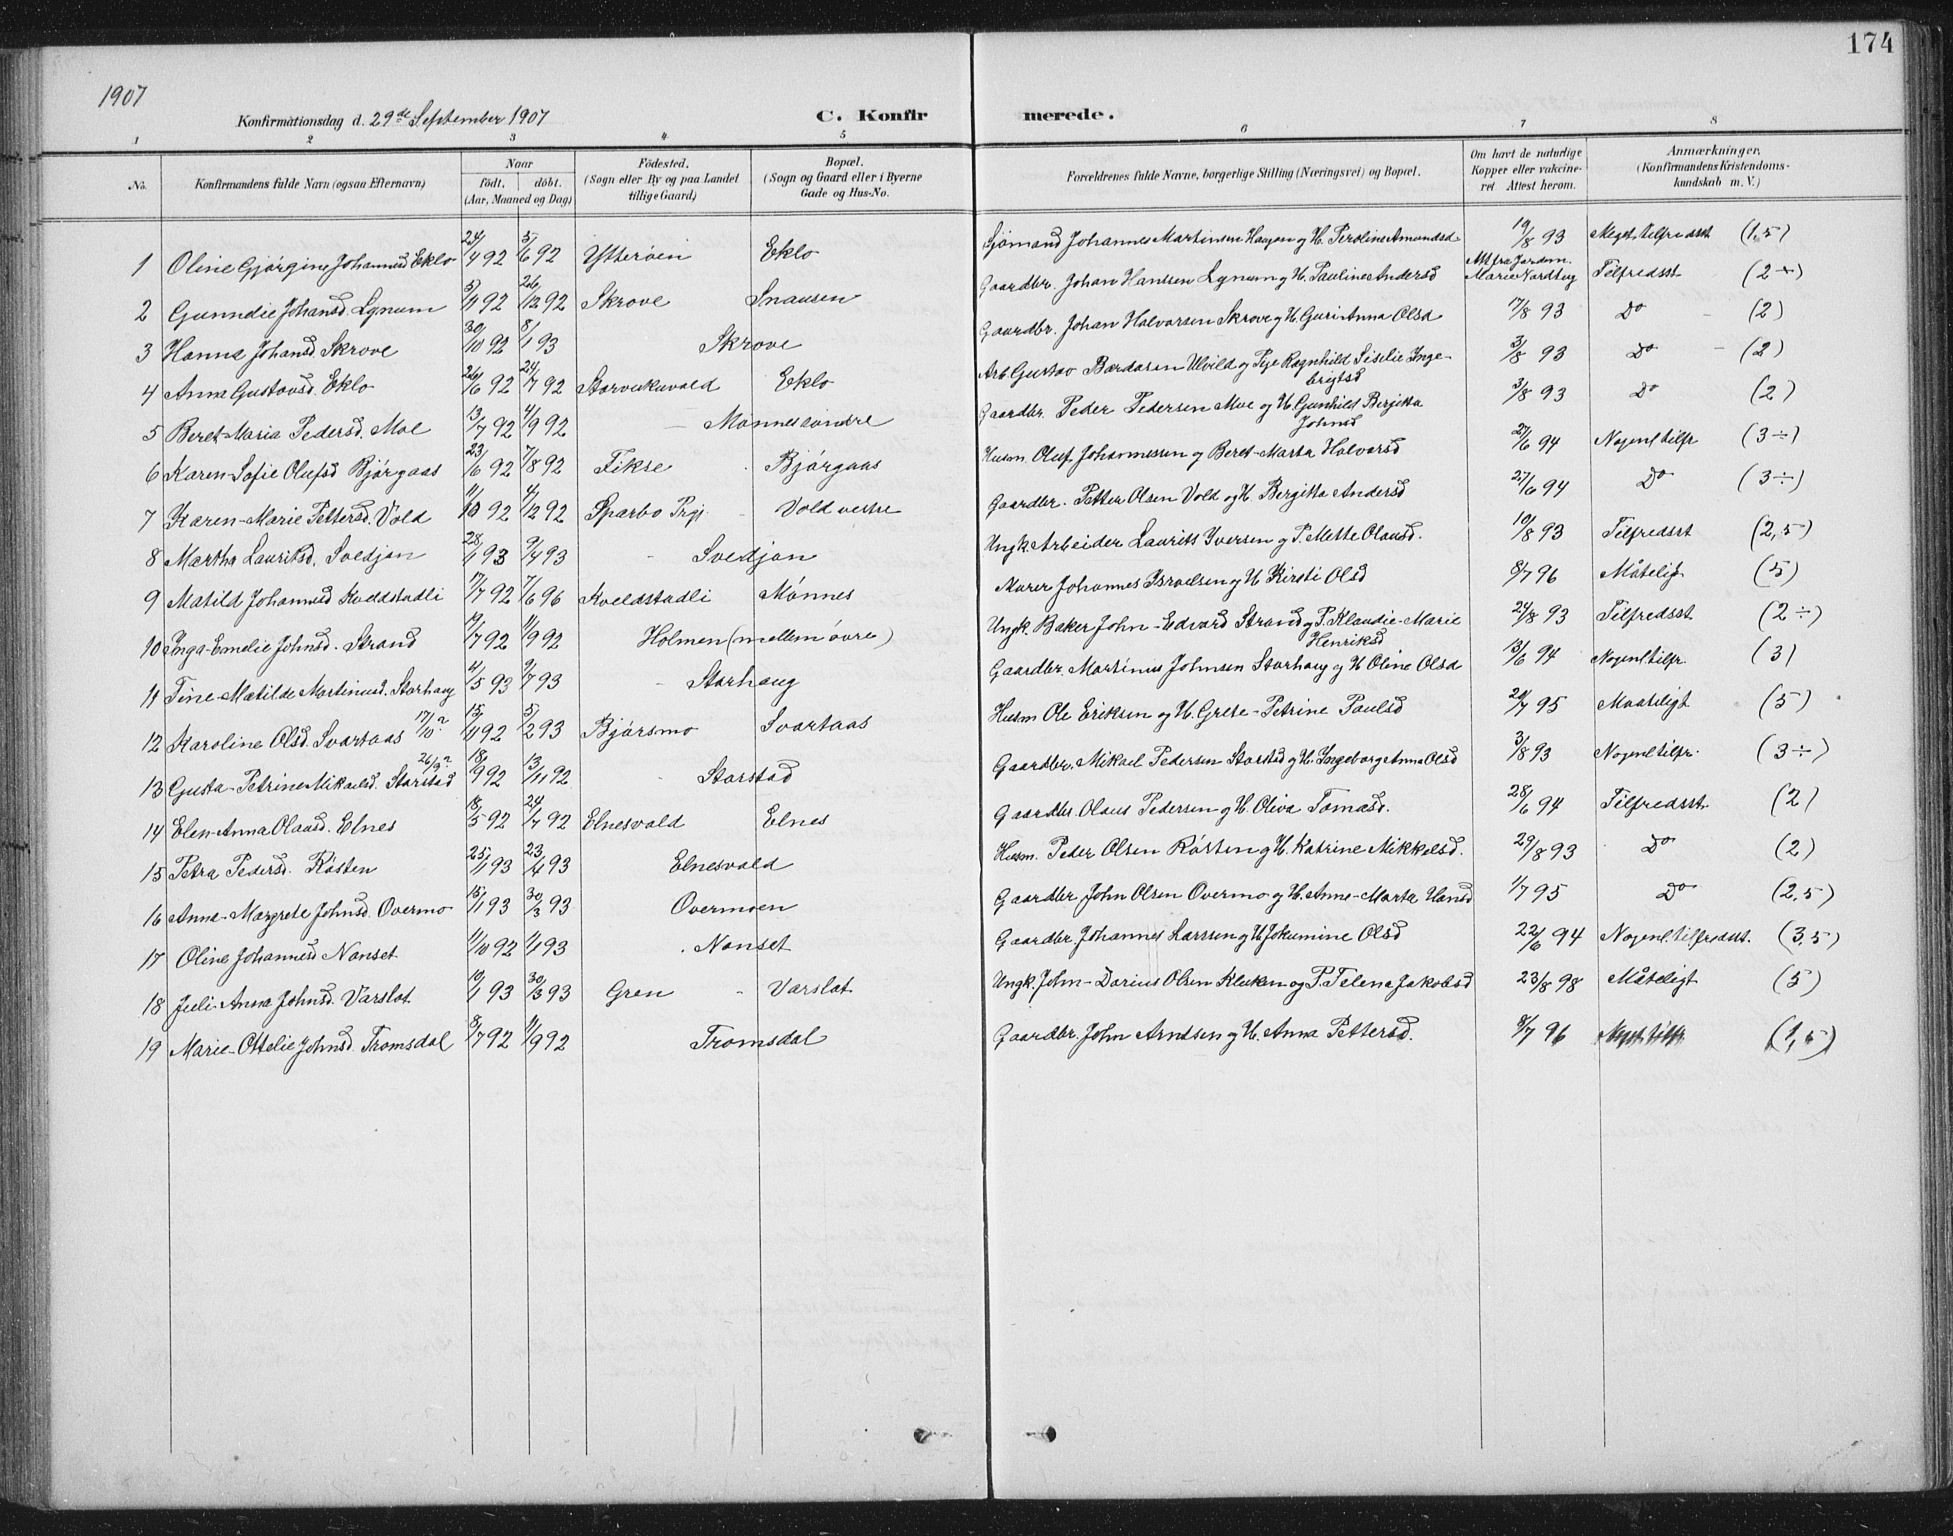 174
1907
Konfirmationsdag d. 29de September 1907 C. Konfirmerede.
1 2 3 4 5 6 7 8
No. Konfirmandens fulde Navn (ogsaa Efternavn) Naar födt. döbt. (Aar, Maaned og Dag) Födested. (Sogn eller By og paa Landet tillige Gaard) Bopæl. (Sogn og Gaard eller i Byerne Gade og Hus-No. Forældrenes fulde Navne, borgerlige Stilling (Næringsvei) og Bopæl. Om havt de naturlige Kopper eller vakcineret. Attest herom. Anmærkninger, (Konfirmandens Kristendomskundskab m. V.)
1 Oline Gjørgine Johannesd Eklo 24/4 92 5/6 92 Ytterøien Eklo Sjömand Johannes Martinsen Haugan og H. Peroline Amundsd 19/8 93 Meget tilfredsst (1,5)
2 Gunndie Johansd. Lynum 5/11 92 26/12 92 Skrove Snausen Gaardbr. Johan Hansen Lynum og H. Pauline Andersd Att fra Jordm. Marie Nordtug Tilfredsst (2+)
3 Hanna Johansd Skrove 30/10 92 8/1 93 Skrove Gaardbr. Johan Halvorsen Skrove og H. Guri Anna Olsd 17/8 93 Do (2)
4 Anna Gustavsd. Eklo 26/6 92 24/7 92 Storvukuvald Eklo Arb. Gustav Bardosen Ulvild og Pige Ragnhild Siselie Ingebrigtsd 3/8 93 Do (2)
5 Beret-Maria Pedersd. Moe 13/7 92 4/9 92 Mönnes söndre Gaardbr. Peder Pedersen Moe og H. Gunhild Bergitta Johnsd 3/8 93 Do (2)
6 Karen-Sofie Olufsd Bjórgaas 23/6 92 7/8 92 Fikse Bjórgaas Husm. Oluf Johannessen og Beret-Marta Halvorsd 27/6 94 Nogenl tilfr (3÷)
7 Karen-Marie Pettersd. Vold 11/10 92 4/12 92 Sparbo Prgj. Vold vestre Gaardbr. Petter Olsen Vold og H. Bergitta Andersd 27/6 94 Do (3÷)
8 Martha Lauritsd. Svedjan 28/1 93 9/4 93 Svedjan Ungk. Arbeider Laurits Iversen og P. Mette Olausd. 10/8 93 Tilfredsst (2,5)
9 Matild Johannesd Kveldstadli 17/7 92 7/6 96 Kveldstadli Mónnes Murer Johannes Israelsen og H Kirsti Olsd 8/7 96 Måtelig (5)
10 Inga-Emelie Johnsd. Strand 19/7 92 11/9 92 Holmen (mellem óvre) Ungk. Baker John-Edvard Strand og P. Klaudie-Marie Henriksd 24/8 93 Tilfredsst (2÷)
11 Tine-Matilde Martinusd. Storhaug 4/5 93 9/7 93 Storhaug Gaardbr. Martinus Johnsen Storhaug og H Oline Olsd 13/6 94 Nogenl tilfr. (3)
12 Karoline Olsd. Svartaas 17/10? 15/11 92 5/2 93 Bjórsmo Svartaas Husm Ole Eriksen og H. Grete-Petrine Paulsd 20/7 95 Maateligt (5)
13 Gusta-Petrine Mikaelsd. Storstad 26/9? 18/9 92 13/11 92 Storstad Gaardbr. Mikael Pedersen Storstad og H. Ingeborg Anna Olsd 3/8 93 Nogenl tilfr. (3÷)
14 Elen-Anna Olausd. Elnes 18/5 92 24/7 92 Elnesvald Elnes Gaardbr. Olaus Pedersen og H. Oliva Tomasd. 28/6 94 Tilfredsst (2)
15 Petra Pedersd. Rösten 25/1 93 23/4 93 Elnesvald Husm. Peder Olsen Rósten og H. Katrine Mikkelsd. 29/8 93 Do (2)
16 Anna-Margrete Johnsd. Overmo 15/1 93 30/3 93 Overmoen Gaardbr. John Olsen Overmo og H. Anne-Marta Hansd 1/7 95 Do (2,5)
17 Oline Johannesd Nonset 11/10 92 1/1 93 Nonset Gaardbr. Johannes Larssen og H Jokumine Olsd 22/6 94 Nogenl. tilfredsst. (3,5)
18 Juli-Anna Johnsd. Varslot 10/1 93 30/3 93 Gren Varslot Ungk. John-Darius Olsen Kluken og P. Telena Jakobsd 23/8 98 Måteligt (5)
19 Marie-Ottelie Johnsd. Tromsdal 8/7 92 11/9 92 Tromsdal Gaardbr. John Arndsen og H. Anna Pettersd. 8/7 96 Meget tilfr (1,5)